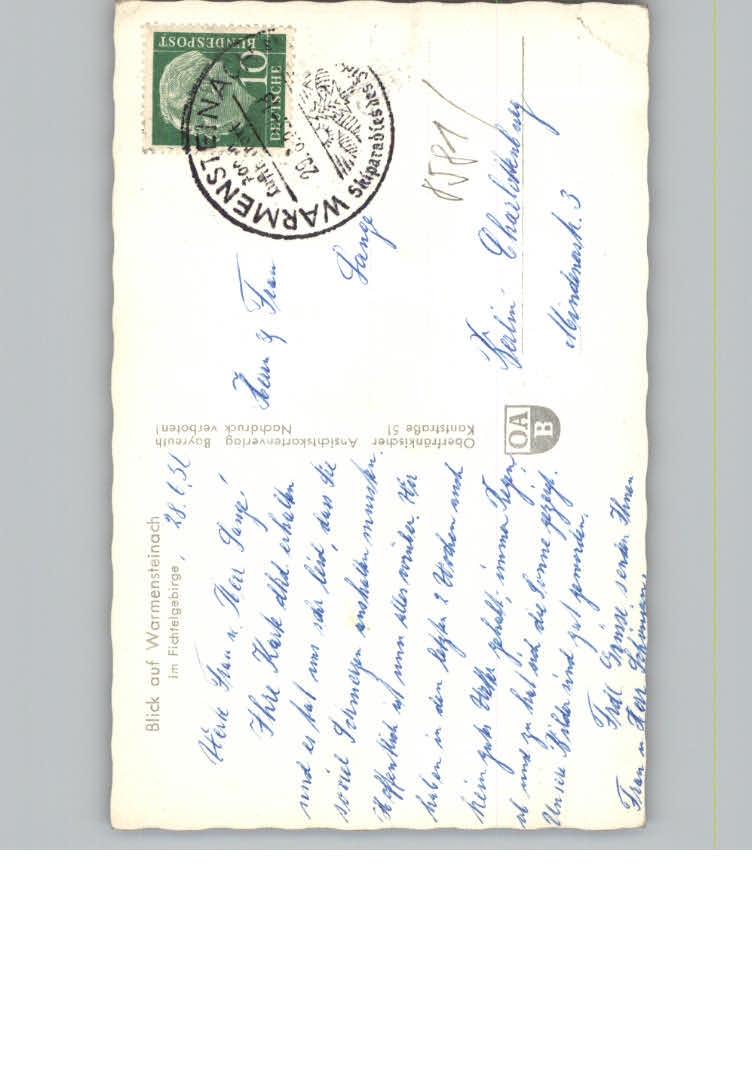 Blick auf Warmensteinach
im Fichtelgebirge,
Werte Frau u. Herr Lange!
Ihre Karte erhalten
und es tut uns sehr leid, dass Sie
soviel Schmerzen aushalten mussten.
Hoffentlich ist nun alles vorüber. Wir
haben in den letzten 2 Wochen auch
kein gutes Wetter gehabt, immer Regen
ab und zu hat sich die Sonne gezeigt.
Unsere Bilder sind gut geworden.
Frdl. Grüsse senden Ihnen
Frau u. Herr
Oberfränkischer Ansichtskartenverlag Bayreuth
Kantstraße 51 Nachdruck verboten!
OA
B
DEUTSCHE
BUNDESPOST
10
WARMENSTEINACH
Skiparadies des
Herrn & Frau
Lange
Berlin-Charlottenburg
Mindenerstr. 3